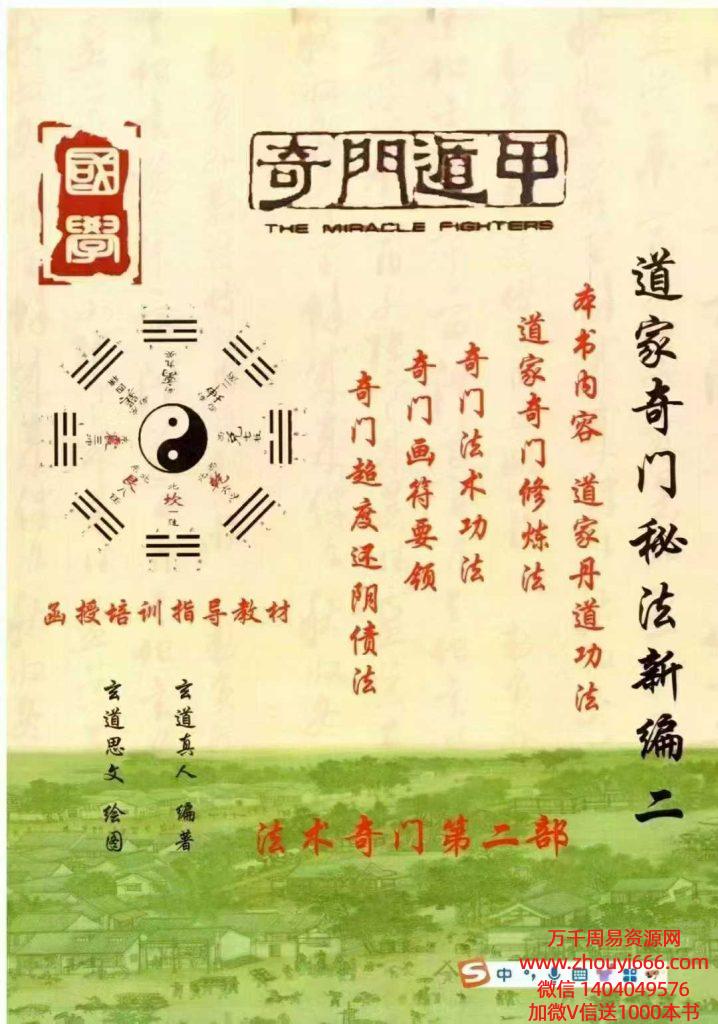 國學
奇門遁甲
THE MIRACLE FIGHTERS
道家奇门秘法新编 二
本书内容 道家丹道功法
道家奇门修炼法
奇门法术功法
奇门画符要领
奇门超度还阴债法
函授培训指导教材
玄道真人 编著
玄道思文 绘图
法术奇门第二部
万千周易资源网
www.zhouyi666.com
微信 1404049576
加微V信送1000本书
中